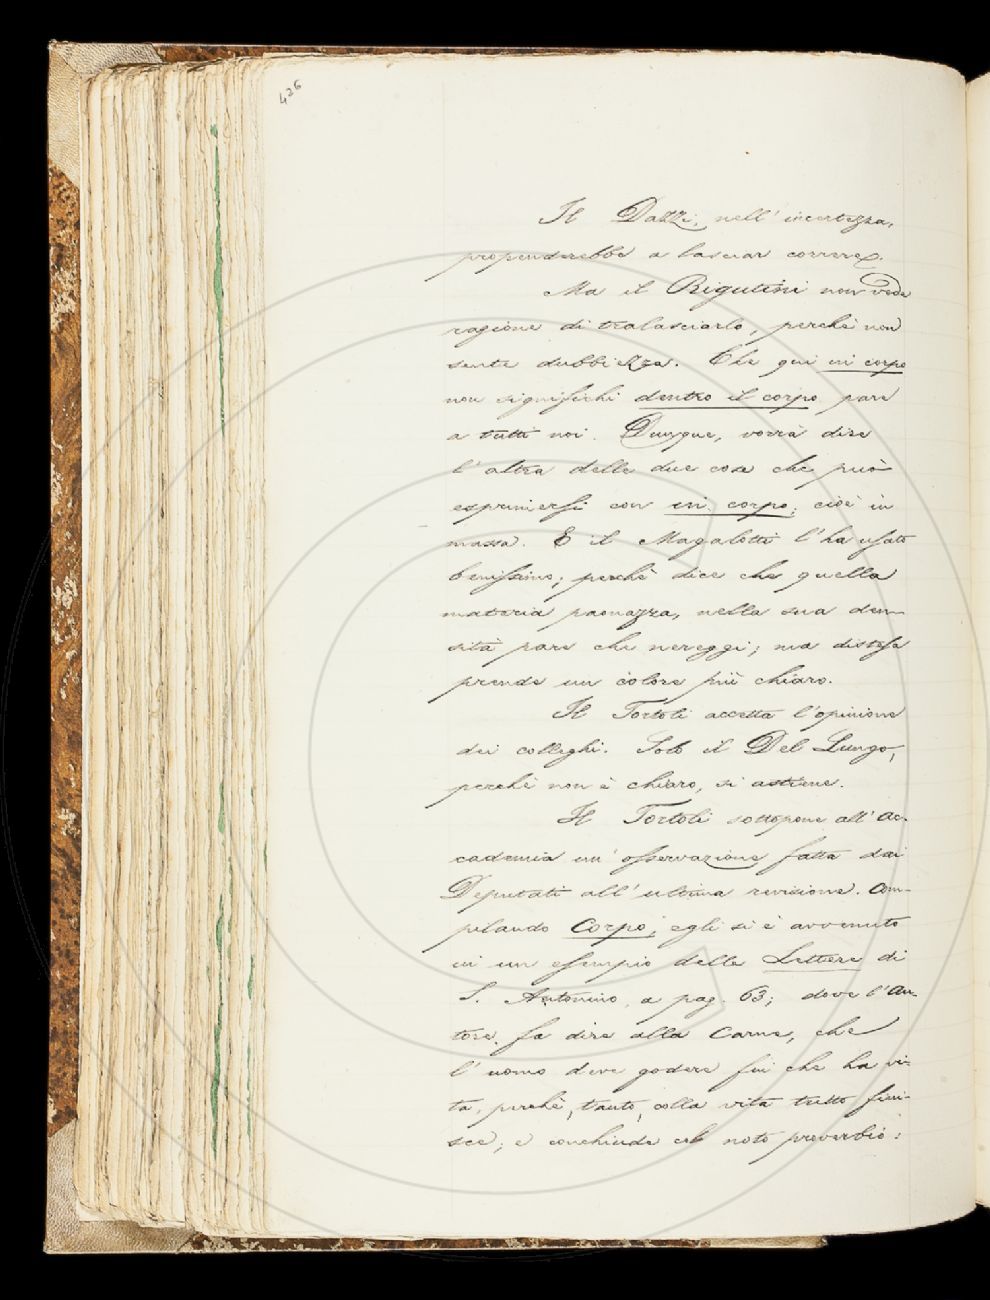 426
Il Dazzi, nell' incertezza,
propenderebbe a lasciar correre.
Ma il Rigutini non vede
ragione di tralasciarlo, perchè non
sente dubbiezza. Che qui in corpo
non significhi dentro il corpo, pare
a tutti noi. Dunque, vorrà dire
l' altra delle due cose che può
esprimersi con in corpo, cioè in
massa. E il Magalotti l' ha usato
benissimo; perchè dice che quella
materia paonazza, nella sua den-
sità pare che nereggi; ma distesa
prende un colore più chiaro.
Il Tortoli accetta l' opinione
dei colleghi. Solo il Del Lungo,
perchè non è chiaro, si astiene.
Il Tortoli sottopone all' Ac-
cademia un' osservazione fatta dai
Deputati all' ultima revisione. Com-
pilando Corpo, egli si è avvenuto
in un esempio delle Lettere di
S. Antonino, a pag. 63; dove l' Au-
tore fa dire alla Carne, che
l' uomo deve godere fin che ha vi-
ta, perchè, tanto, colla vita tutto fini-
sce; e conchiude col noto proverbio: